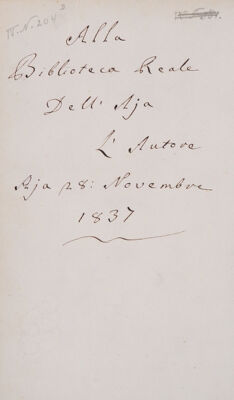 IV. N. 204
Alla
Biblioteca Reale
Dell' Aja
L' Autore
Aja 28: Novembre
1837